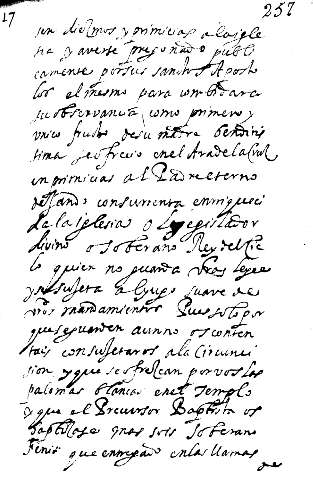 17 257
en diezmos y primicias a la igle
sia y averse pregonado publi
camente por sus sanctos Aposto
los el mesmo para combidar a
su observancia, como primero y
unico fruto de su madre benditis
sima se ofrecio en el Ara de la Cruz
en primicias al Padre eterno
dejando consumenta enrriqueci
da la iglesia O legislador
divino o soberano Rey del cie
lo quien no guarda vras leyes
y se sujeta al yugo suave de
vros mandamientos Pues solo por
que se guarden aun no os conten
tais con sujetaros a la circunci
sion y que se ofrezcan por vos las
palomas blancas en el templo
y que el Precursor Baptista os
baptize mas sois soberano
Fenis que entregado en las llamas
de